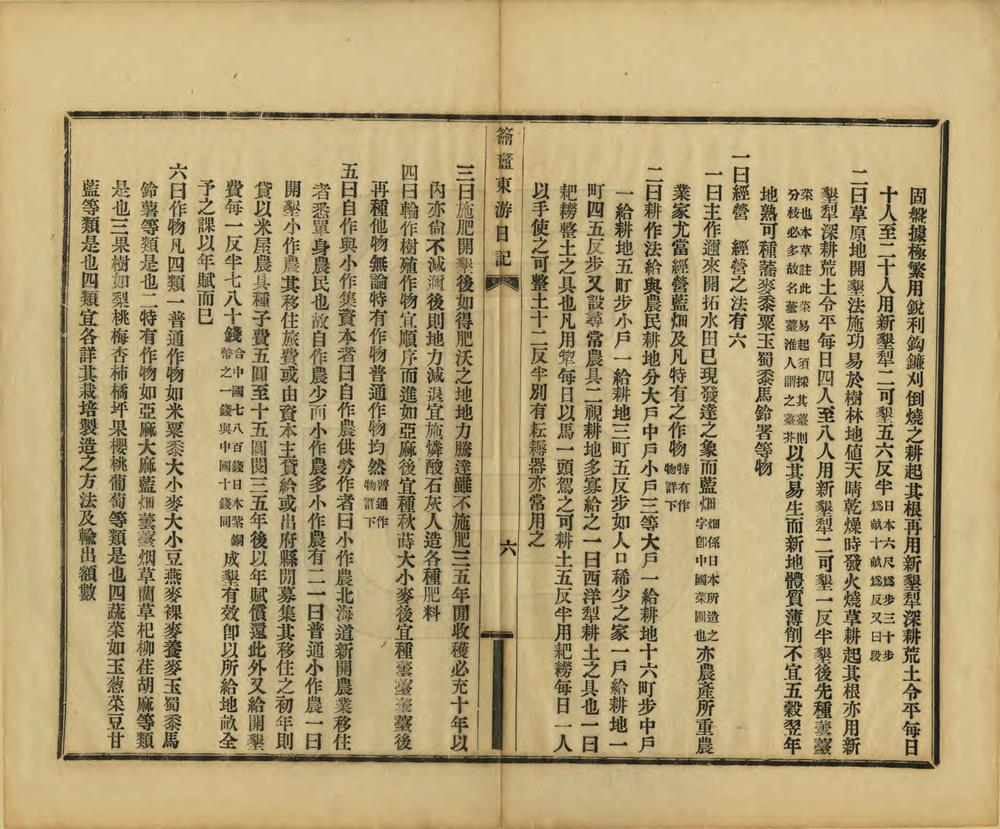 固盤據極繁用銳利鈎鐮刈倒燒之耕起其根再用新墾犁深耕荒土令平每日
十人至二十人用新墾犁二可墾五六反半日本六尺爲步三十步爲畝十畝爲反又曰段
二曰草原地開墾法施功易於樹林地値天晴乾燥時發火燒草耕起其根亦用新
墾犁深耕荒土令平每日四人至八人用新墾犁二可墾一反半墾後先種蕓薹
菜也本草註此菜易起須採其薹則分枝必多故名蕓薹淮人謂之薹芥以其易生而新地體質薄削不宜五穀翌年
地熟可種蕎麥黍粟玉蜀黍馬鈴薯等物
一曰經營　經營之法有六
一曰主作邇來開拓水田已現發達之象而藍畑畑係日本所造之字卽中國菜圃也亦農產所重農
業家尤當經營藍畑及凡特有之作物特有作物詳下
二曰耕作法給與農民耕地分大戶中戶小戶三等大戶一給耕地十六町步中戶
一給耕地五町步小戶一給耕地三町五反步如人口稀少之家一戶給耕地一
町四五反步又設尋常農具二視耕地多寡給之一曰西洋犁耕土之具也一曰
耙耮整土之具也凡用犂每日以馬一頭駕之可耕土五反半用耙耮每日一人
以手使之可整土十二反半別有耘耨器亦常用之
籥盦東游日記
六
三曰施肥開墾後如得肥沃之地地力騰達雖不施肥三五年閒收穫必充十年以
內亦尙不減澗後則地力減退宜施燐酸石灰人造各種肥料
四曰輪作樹殖作物宜順序而進如亞麻後宜種秋蒔大小麥後宜種蕓薹蕓薹後
再種他物無論特有作物普通作物均然普通作物詳下
五曰自作與小作集資本者曰自作農供勞作者曰小作農北海道新開農業移住
者悉單身農民也故自作農少而小作農多小作農有二一曰普通小作農一曰
開墾小作農其移住旅費或由資本主貸給或出府縣閒募集其移住之初年則
貸以米屋農具種子費五圓至十五圓閱三五年後以年賦償還此外又給開墾
費每一反半七八十錢合中國七八百錢日本紫銅幣之一錢與中國十錢同成墾有效卽以所給地畝全
予之課以年賦而已
六曰作物凡四類一普通作物如米粟黍大小麥大小豆燕麥裸麥蕎麥玉蜀黍馬
鈴薯等類是也二特有作物如亞麻大麻藍畑蕓薹烟草藺草杞柳荏胡麻等類
是也三果樹如梨桃梅杏柿橘坪果櫻桃葡萄等類是也四蔬菜如玉葱菜豆甘
藍等類是也四類宜各詳其栽培製造之方法及輸出額數